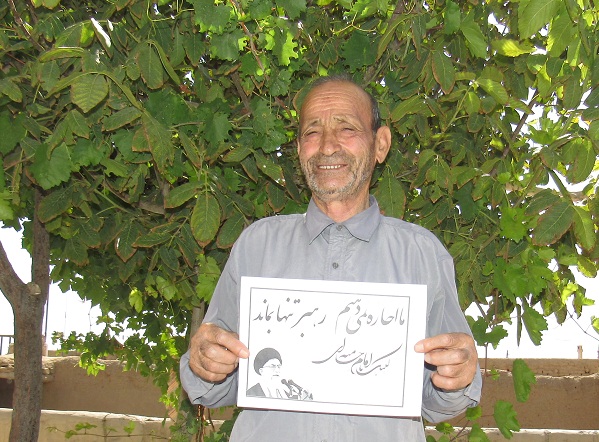 ما اجازه نمی دهیم رهبر تنها بماند
لبیک امام خامنه ای